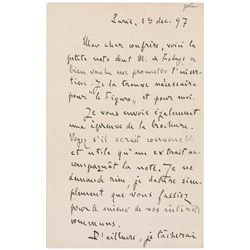 Zola
Paris, 13 déc. 97
Mon cher confrère, voici la
petite note dont M. de Rodays a
bien voulu me promettre l'inser-
tion. Je la trouve nécessaire
pour le Figaro, et pour moi.
Je vous envoie également
une épreuve de la brochure.
Voyez s'il serait convenable
et utile qu'un extrait ac-
compagnât la note. Je ne
demande rien, je désire sim-
plement que vous fassiez
pour le mieux de nos intérêts
communs.
D'ailleurs, je tâcherai